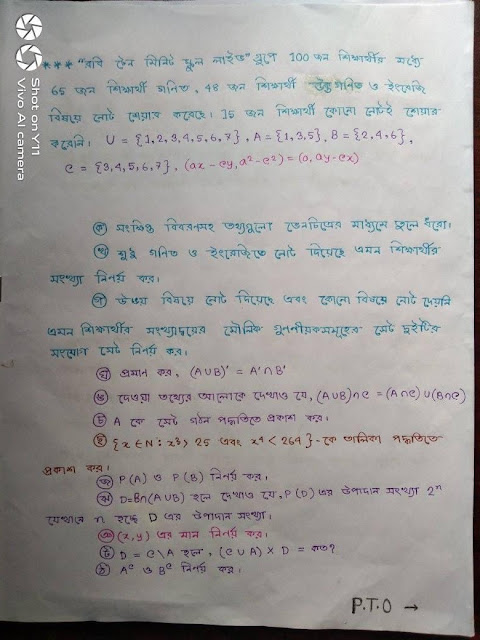 *** "রবি টেন মিনিট স্কুল লাইভ" গ্রুপে 100 জন শিক্ষার্থীর মধ্যে
65 জন শিক্ষার্থী গণিত, 48 জন শিক্ষার্থী গণিত ও ইংরেজি
বিষয়ে নোট শেয়ার করেছে। 15 জন শিক্ষার্থী কোনো নোটই শেয়ার
করেনি। U = {1,2,3,4,5,6,7}, A = {1,3,5}, B = {2,4,6},
C = {3,4,5,6,7}, (ax - cy, a²-c²) = (0, ay-cx)
ক সংক্ষিপ্ত বিবরনসহ তথ্যগুলো ভেনচিত্রের মাধ্যমে তুলে ধরো।
খ শুধু গনিত ও ইংরেজিতে নোট দিয়েছে এমন শিক্ষার্থীর
সংখ্যা নির্ণয় কর।
গ উভয় বিষয়ে নোট দিয়েছে এবং কোনো বিষয়ে নোট দেয়নি
এমন শিক্ষার্থীর সংখ্যাদ্বয়ের মৌলিক গুননীয়কসমূহের সেট দুইটির
সংযোগ সেট নির্ণয় কর।
ঘ প্রমান কর, (A∪B)′ = A′∩B′
ঙ দেওয়া তথ্যের আলোকে দেখাও যে, (A∪B)∩C = (A∩C)∪(B∩C)
চ A কে সেট গঠন পদ্ধতিতে প্রকাশ কর।
ছ {x∈N : x³> 25 এবং x⁴ < 264}-কে তালিকা পদ্ধতিতে
প্রকাশ কর।
জ P(A) ও P(B) নির্ণয় কর।
ঝ D=B∩(A∪B) হলে দেখাও যে, P(D) এর উপাদান সংখ্যা 2ⁿ
যেখানে n হচ্ছে D এর উপাদান সংখ্যা।
ঞ (x,y) এর মান নির্ণয় কর।
ট D = C\A হলে, (C∪A) × D = কত?
ঠ Aᶜ ও Bᶜ নির্ণয় কর।
P.T.O →
Shot on Y11
Vivo AI camera